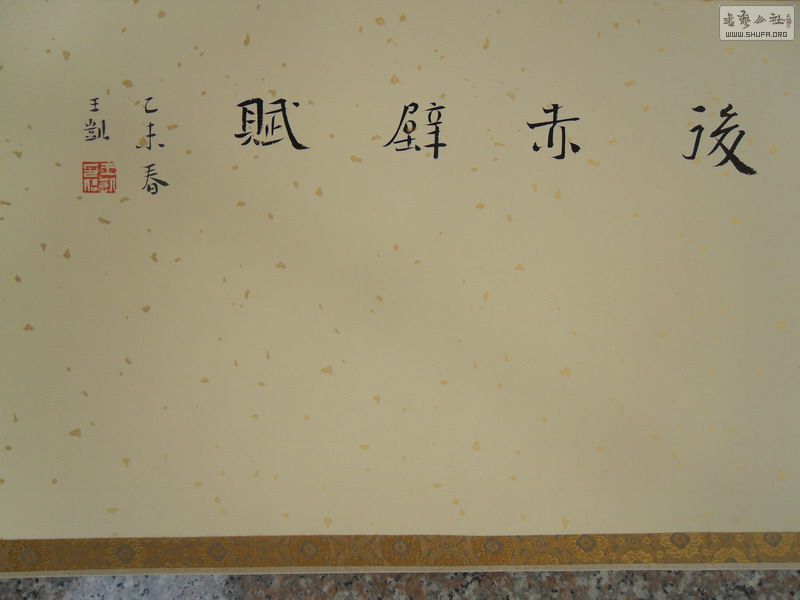 後赤壁賦
乙未春
王凱
書藝公社
WWW.SHUFA.ORG